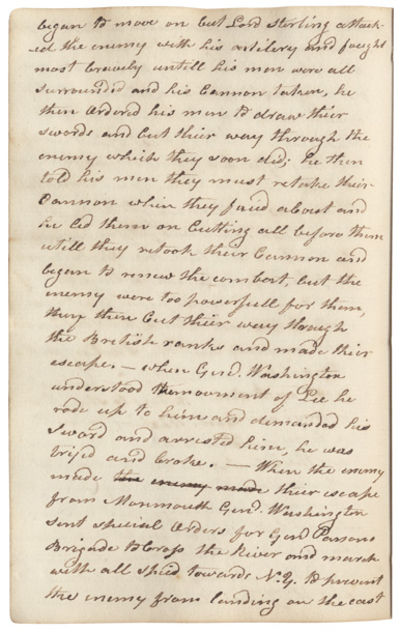 began to move on but Lord Sterling attack-
ed the enemy with his artilery and fought
most bravely untill his men were all
surrounded and his Cannon taken, he
then ordered his men to draw thier
swords and Cut thier way through the
enemy which they soon did; he then
told his men they must retake their
Cannon when they faced about and
he led them on Cutting all before them
utill they retook their Cannon and
began to renew the combat, but the
enemy were too powerfull for them,
they then Cut thier way through
the British ranks and made thier
escape. — when Genl. Washington
understood the movment of Lee he
rode up to him and demanded his
sword and arrested him, he was
try'd and broke. — When the enemy
made the enemy made thier escape
from Monmouth Genl. Washington
sent special Orders for Genl Parsons
Brigade to Cross the River and march
with all speed towards N.Y. to prevent
the enemy from landing on the east